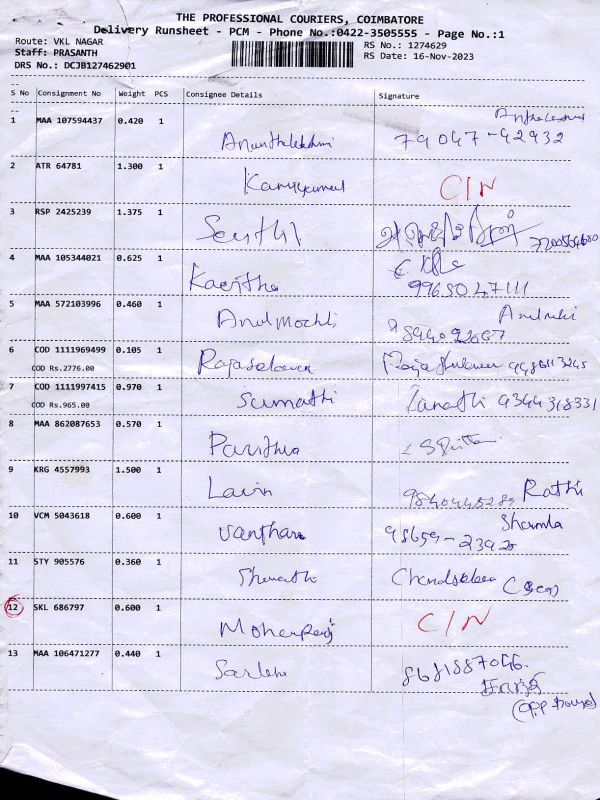 THE PROFESSIONAL COURIERS, COIMBATORE
Delivery Runsheet - PCM - Phone No.:0422-3505555 - Page No.:1
Route: VKL NAGAR
Staff: PRASANTH
DRS No.: DCJB127462901
RS No.: 1274629
RS Date: 16-Nov-2023
S No Consignment No Weight PCS Consignee Details Signature
1 MAA 107594437 0.420 1 79047-42932
2 ATR 64781 1.300 1 C/N
3 RSP 2425239 1.375 1 Senthil
4 MAA 105344021 0.625 1 Kavitha
5 MAA 572103996 0.460 1
6 COD 1111969499 0.105 1
COD Rs.2776.00
7 COD 1111997415 0.970 1 Sumathi 9344318331
COD Rs.965.00
8 MAA 862087653 0.570 1 Pavithra
9 KRG 4557993 1.500 1 Rathi
10 VCM 5043618 0.600 1 Vanthana Sharmla
11 STY 905576 0.360 1
12 SKL 686797 0.600 1 Mohanraj C/N
13 MAA 106471277 0.440 1 8681887046
(opp house)